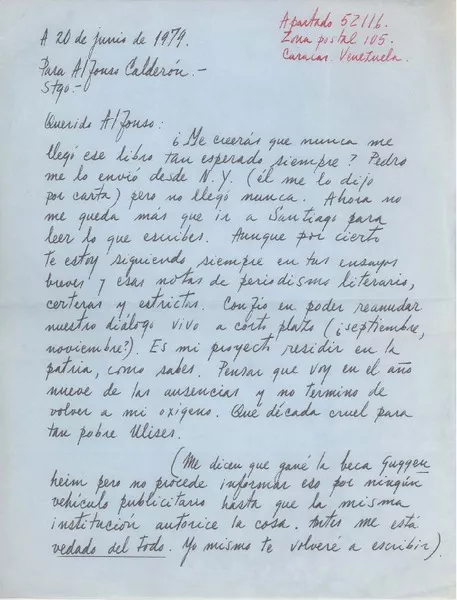 Apartado 52116.
Zona postal 105.
Caracas. Venezuela.
A 20 de junio de 1979.
Para Alfonso Calderón.-
Stgo.-
Querido Alfonso:
¿Me creerás que nunca me
llegó ese libro tan esperado siempre? Pedro
me lo envió desde N.Y. (él me lo dijo
por carta) pero no llegó nunca. Ahora no
me queda más que ir a Santiago para
leer lo que escribes. Aunque por cierto
te estoy siguiendo siempre en tus ensayos
breves y esas notas de periodismo literario,
certeras y estrictas. Confío en poder reanudar
nuestro diálogo vivo a corto plazo (¿septiembre,
noviembre?). Es mi proyecto residir en la
patria, como sabes. Pensar que voy en el año
nueve de las ausencias y no termino de
volver a mi oxígeno. Qué década cruel para
tan pobre Ulises.
(Me dicen que gané la beca Guggen
heim pero no procede informar eso por ningún
vehículo publicitario hasta que la misma
institución autorice la cosa. Antes me está
vedado del todo. Yo mismo te volveré a escribir).